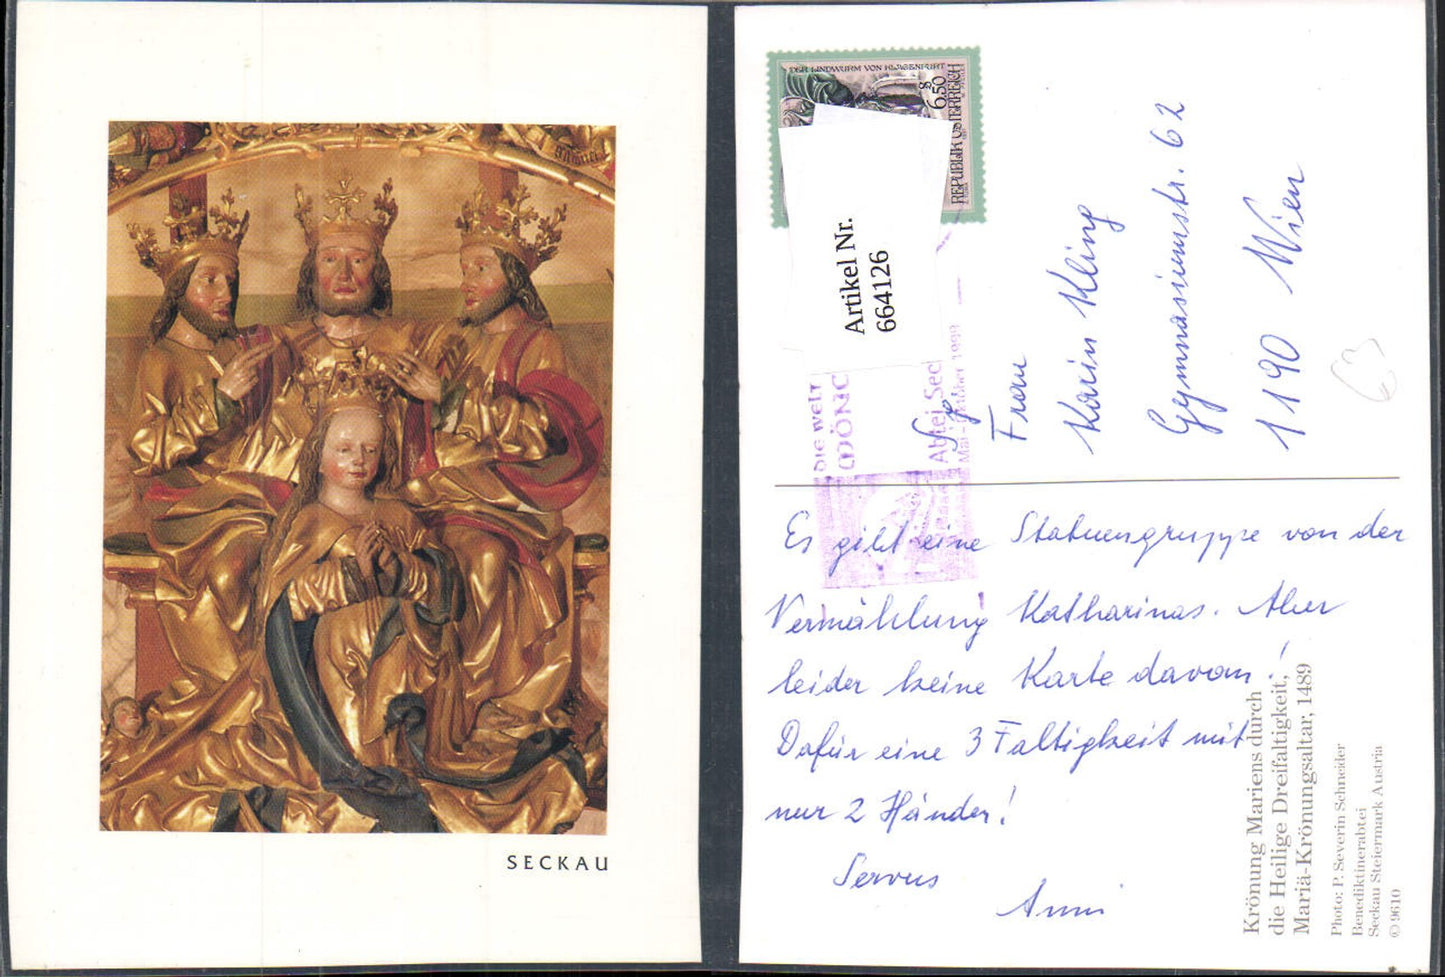 SECKAU
DER LINDWURM VON KLAGENFURT
S 6,50
REPUBLIK ÖSTERREICH
Artikel Nr.
664126
DIE WELT
MÖNC
Abtei Sec
Mai - 1999
Frau
Karin Kling
Gymnasiumstr. 62
1190 Wien
Es gibt eine Statuengruppe von der
Vermählung Katharinas. Aber
leider keine Karte davon!
Dafür eine 3 Faltigkeit mit
nur 2 Händen!
Servus
Anni
Krönung Mariens durch
die Heilige Dreifaltigkeit,
Mariä-Krönungsaltar, 1489
Photo: P. Severin Schneider
Benediktinerabtei
Seckau Steiermark Austria
© 9610